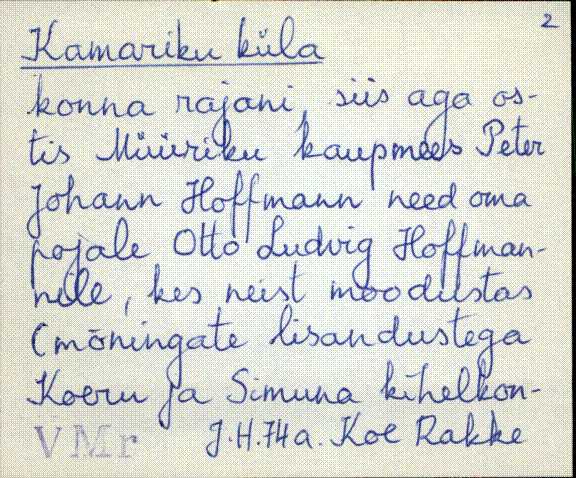 2
Kamariku küla
konna rajani, siis aga os-
tis Müüriku kaupmees Peter
Johann Hoffmann need oma
pojale Otto Ludvig Hoffman-
nile, kes neist moodustas
(mõningate lisandustega
Koeru ja Simuna kihelkon-
VMr J.H.74a. Koe Rakke